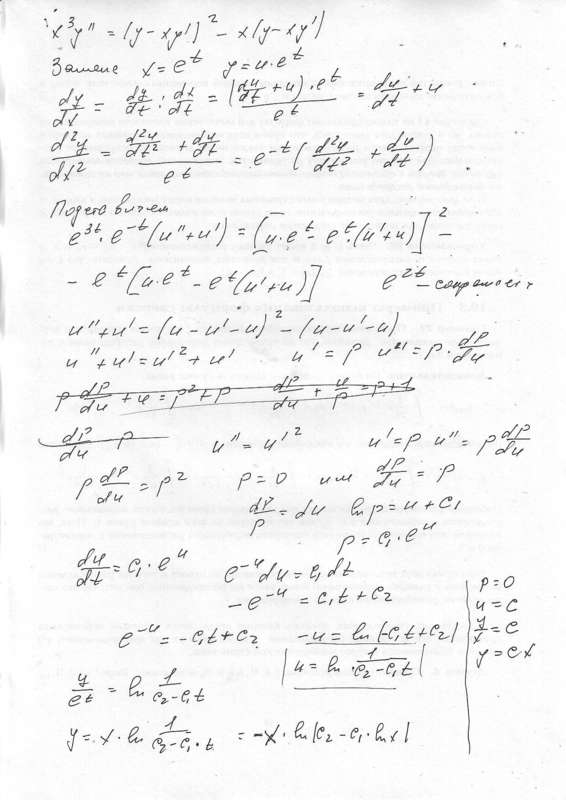 x³y'' = (y - xy')² - x(y - xy')
Замена x = e^t y = u·e^t
dy/dx = dy/dt : dx/dt = (du/dt + u)·e^t / e^t = du/dt + u
d²y/dx² = (d²u/dt² + du/dt) / e^t = e^-t (d²u/dt² + du/dt)
Подставляем
e^3t · e^-t (u'' + u') = [u·e^t - e^t·(u' + u)]² -
- e^t [u·e^t - e^t(u' + u)] e^2t - сокращает
u'' + u' = (u - u' - u)² - (u - u' - u)
u'' + u' = u'² + u' u' = p u'' = p dp/du
p dp/du + u = p² + p dp/du + u/p = p + 1
dp/du p u'' = u'² u' = p u'' = p dp/du
p dp/du = p² p = 0 или dp/du = p
dp/p = du ln p = u + c₁
p = c₁·e^u
du/dt = c₁·e^u e^-u du = c₁dt
- e^-u = c₁t + c₂
e^-u = -c₁t + c₂ -u = ln|-c₁t + c₂|
|u = ln 1/(c₂ - c₁t)|
p = 0
u = c
y/x = c
y = cx
y/e^t = ln 1/(c₂ - c₁t)
y = x·ln 1/(c₂ - c₁·t) = -x·ln|c₂ - c₁·lnx|